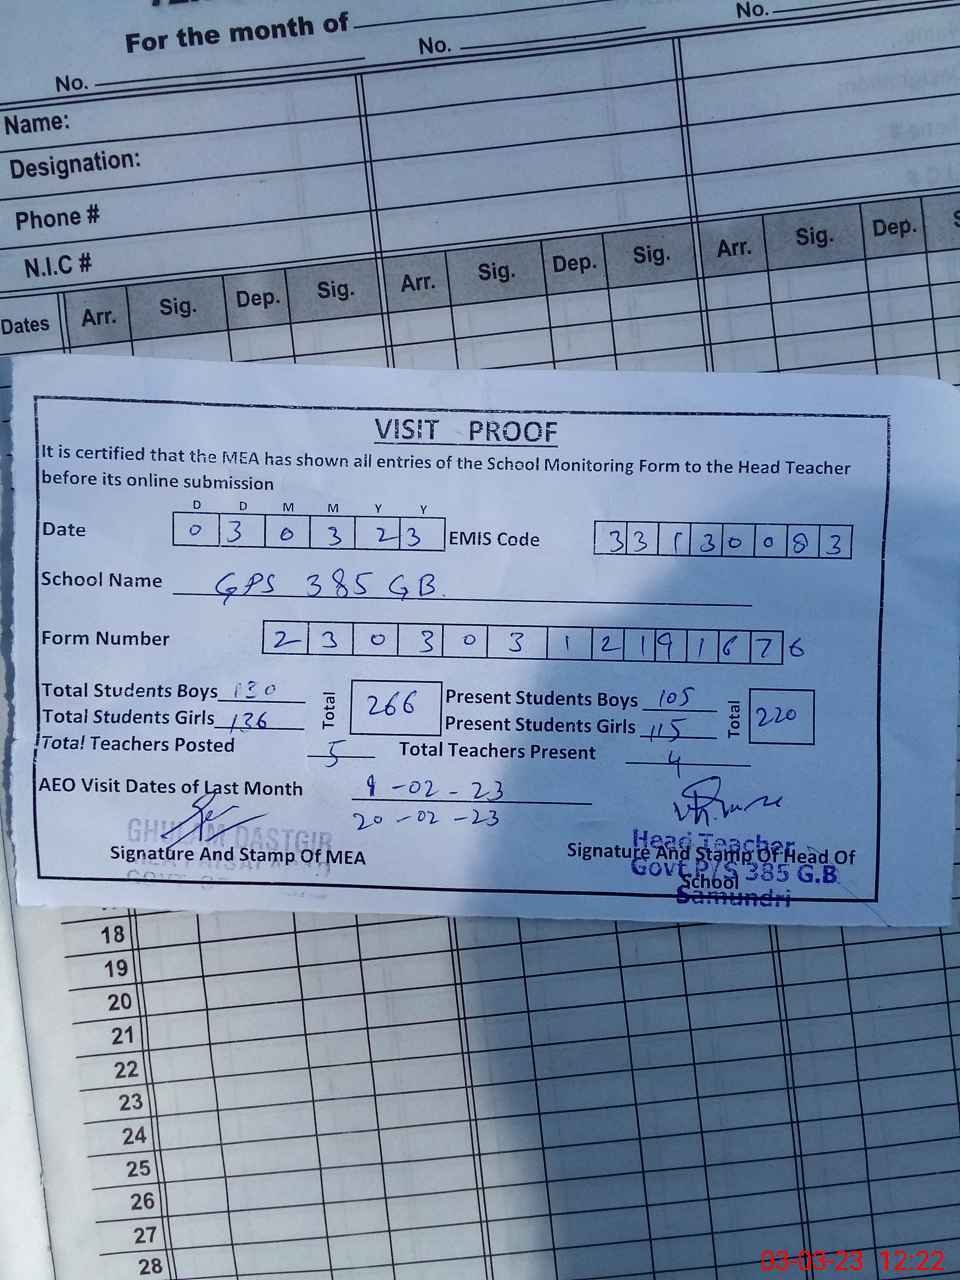 For the month of
No.
No.
No.
Name:
Designation:
Phone #
N.I.C #
Dates Arr. Sig. Dep. Sig. Arr. Sig. Dep. Sig. Arr. Sig. Dep.
VISIT PROOF
It is certified that the MEA has shown all entries of the School Monitoring Form to the Head Teacher
before its online submission
D D M M Y Y
Date 0 3 0 3 2 3 EMIS Code 3 3 1 3 0 0 8 3
School Name GPS 385 GB.
Form Number 2 3 0 3 0 3 1 2 1 9 1 6 7 6
Total Students Boys 130 Total 266 Present Students Boys 105 Total 220
Total Students Girls 136 Present Students Girls 115
Total Teachers Posted 5 Total Teachers Present 4
AEO Visit Dates of Last Month 9-02-23
20-02-23
GHULAM DASTGIR
Signature And Stamp Of MEA
Head Teacher
Signature And Stamp Of Head Of
Govt. P/S 385 G.B.
School
Samundri
18
19
20
21
22
23
24
25
26
27
28
03-03-23 12:22